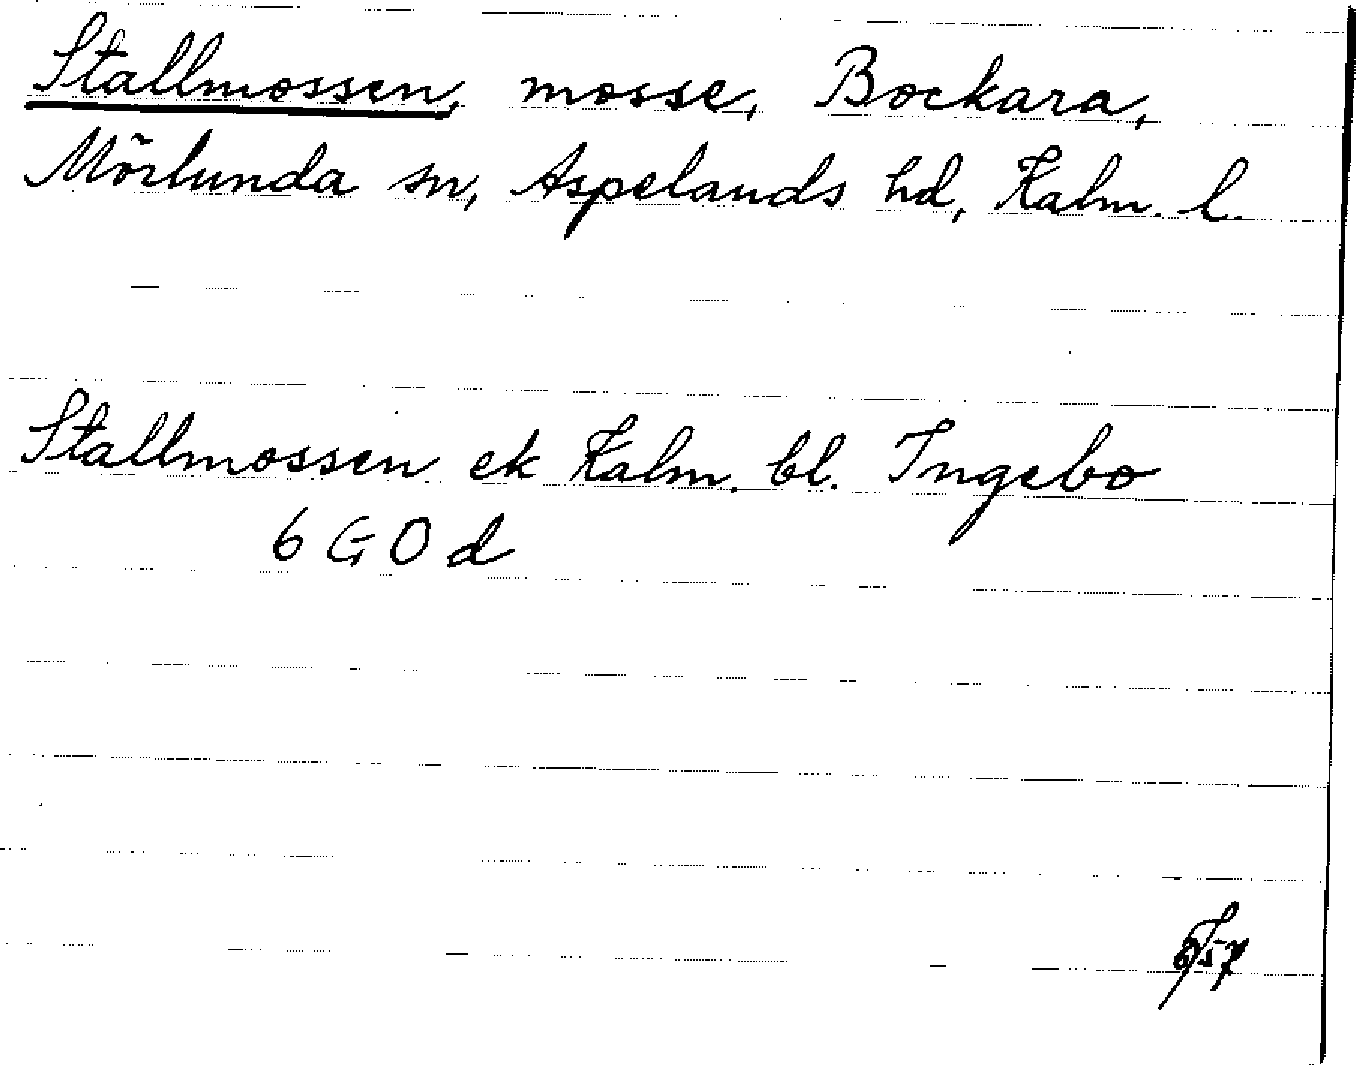 Stallmossen, mosse, Bockara,
Mörlunda sn, Aspelands hd, Kalm. l.
Stallmossen ek Kalm. bl. Ingebo
6 G O d